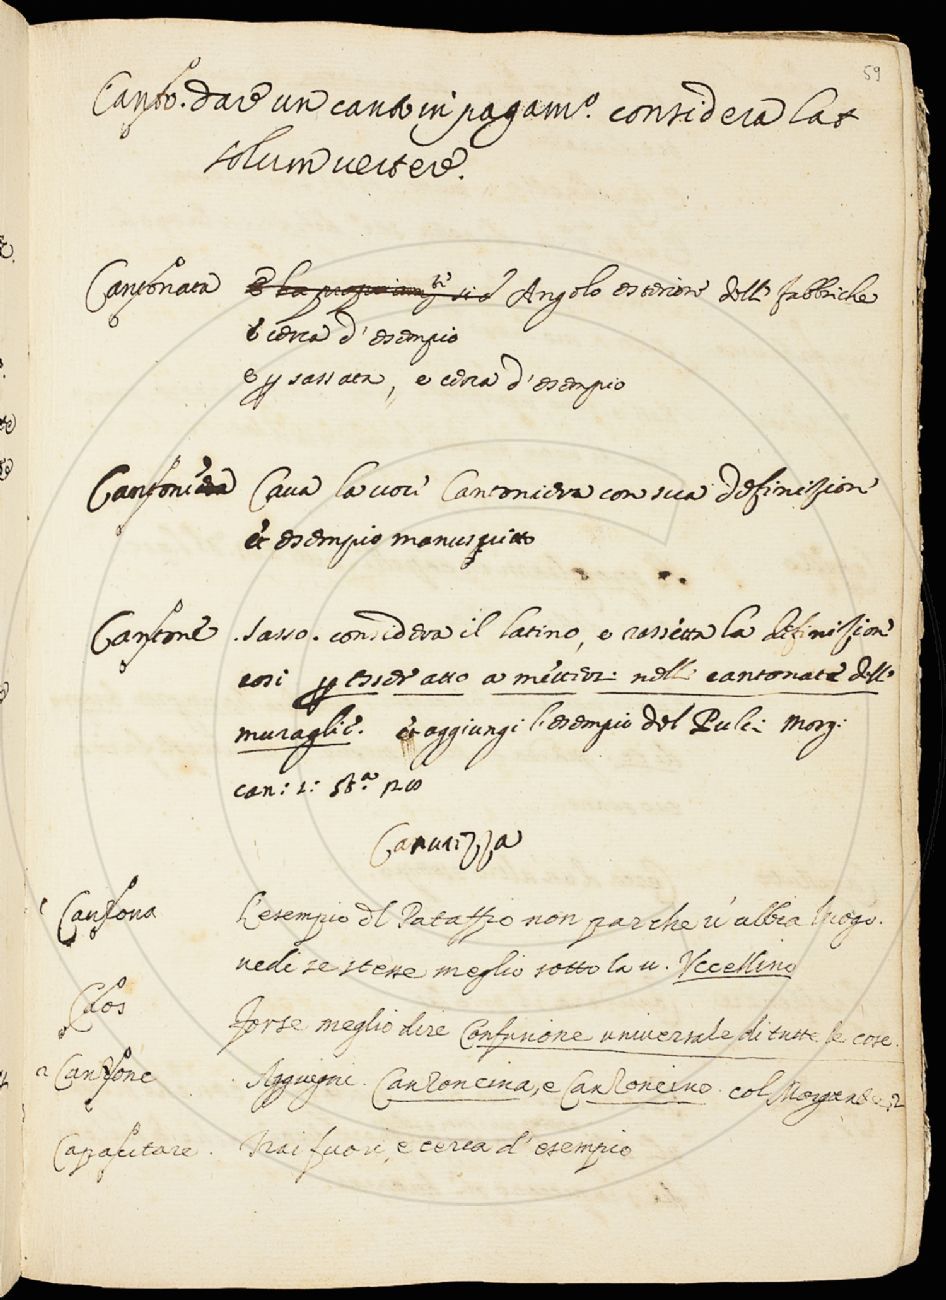 59
Canto. dare un canto in pagam.º considera lat
solum vertere.
Cantonata Angolo esteriore dell fabbriche
e cerca d'esempio
e p sassata, e cerca d'esempio
Cantoniera Cava la voce Cantoniera con sua definizione
et esempio manuscritto
Cantone . sasso. considera il latino, e rassetta la definizione
così p esser atto a metter nell cantonate dell
muraglie. et aggiungi l'esempio del Pulci Morg:
can: 1: st.ª
Canutezza
Canzona L'esempio dl Pataffio non par che v'abbia luogo.
vedi se stesse meglio sotto la v. Uccellino
Caos Forse meglio dire Confusione universale di tutte le cose.
Canzone Aggiugni. Canzoncina, e Canzoncino. col
Capacitare. Trai fuori, e cerca d'esempio